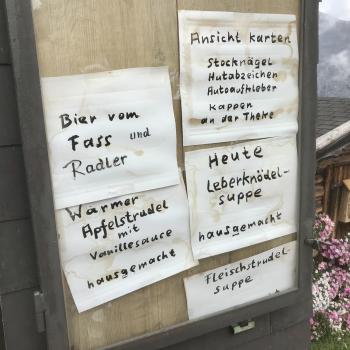 Bier vom
Fass und
Radler
Warmer
Apfelstrudel
mit
Vanillesauce
hausgemacht
Ansicht karten
Stocknägel
Hutabzeichen
Autoaufkleber
Kappen
an der Theke
Heute
Leberknödel-
suppe
hausgemacht
Fleischstrudel-
suppe